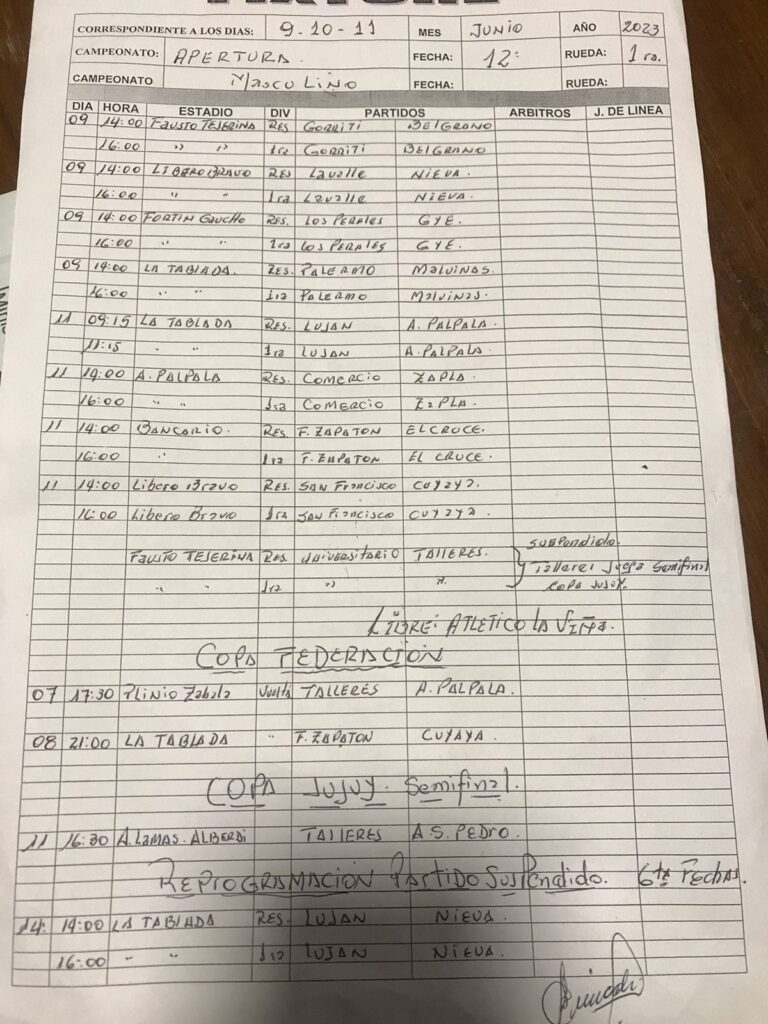 FIXTURE
CORRESPONDIENTE A LOS DIAS: 9-10-11 MES JUNIO AÑO 2023
CAMPEONATO: APERTURA. FECHA: 12ª RUEDA: 1ra.
CAMPEONATO MASCULINO FECHA: RUEDA:
DIA HORA ESTADIO DIV PARTIDOS ARBITROS J. DE LINEA
09 14:00 FAUSTO TEJERINA RES GORRITI BELGRANO
16:00 " " 1ra GORRITI BELGRANO
09 14:00 LIBERO BRAVO RES Lavalle NIEVA.
16:00 " " 1ra Lavalle NIEVA.
09 14:00 FORTIN GAUCHO RES. LOS PERALES GYE.
16:00 " " 1ra LOS PERALES GYE.
09 14:00 LA TABLADA. RES. PALERMO MALVINAS.
16:00 " " 1ra PALERMO MALVINAS.
11 09:15 LA TABLADA RES. LUJAN A. PALPALA.
11:15 " " 1ra LUJAN A. PALPALA.
11 14:00 A. PALPALA RES. COMERCIO ZAPLA.
16:00 " " 1ra COMERCIO ZAPLA.
11 14:00 BANCARIO. RES. F. ZAPATON EL CRUCE.
16:00 " 1ra F. ZAPATON EL CRUCE.
11 14:00 Libero Bravo RES. SAN FRANCISCO CUYAYA.
16:00 Libero Bravo 1ra SAN FRANCISCO CUYAYA.
FAUSTO TEJERINA RES. UNIVERSITARIO TALLERES. SUSPENDIDO.
Talleres Juega Semifinal
" " 1ra " " COPA JUJUY.
LIBRE: ATLETICO LA VIÑA.
COPA FEDERACION
07 17:30 Plinio Zabala Vuelta TALLERES A. PALPALA.
08 21:00 LA TABLADA " F. ZAPATON CUYAYA.
COPA JUJUY. Semifinal.
11 16:30 A. LAMAS. ALBERDI TALLERES A. S. PEDRO.
REPROGRAMACION PARTIDO SUSPENDIDO. 6ta FECHAS.
14. 14:00 LA TABLADA RES. LUJAN NIEVA.
16:00 " " 1ra LUJAN NIEVA.